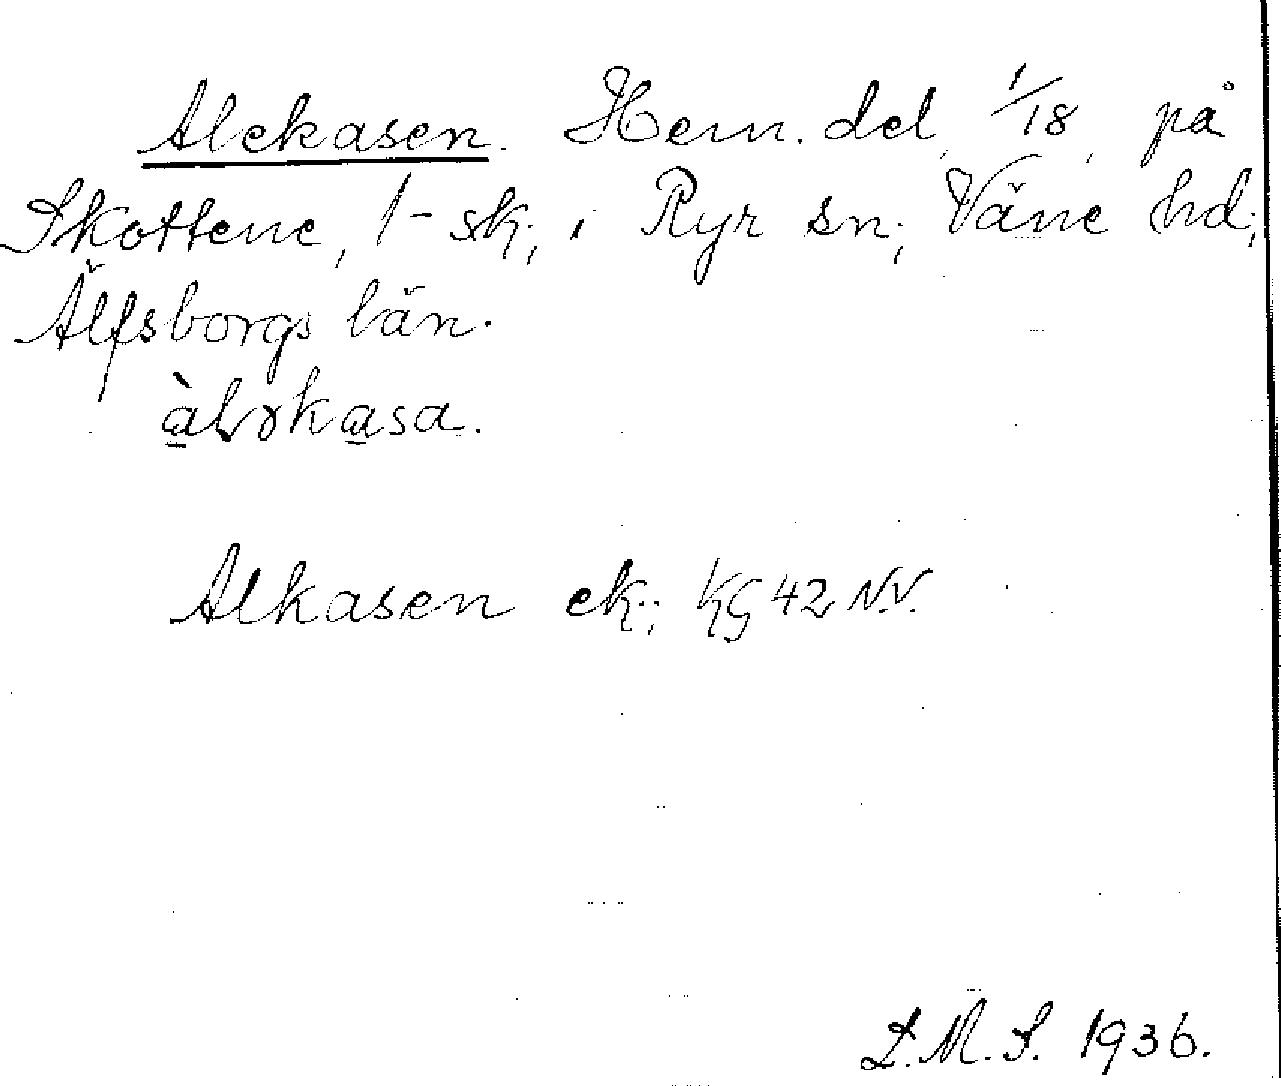 Alekasen. Hem. del, 1/18, på
Skottene, 1-sk; i Ryr sn; Väne hd;
Älfsborgs län.
àlɤkasa.
Alkasen ek; KG 42 N.V.
L.M.S. 1936.